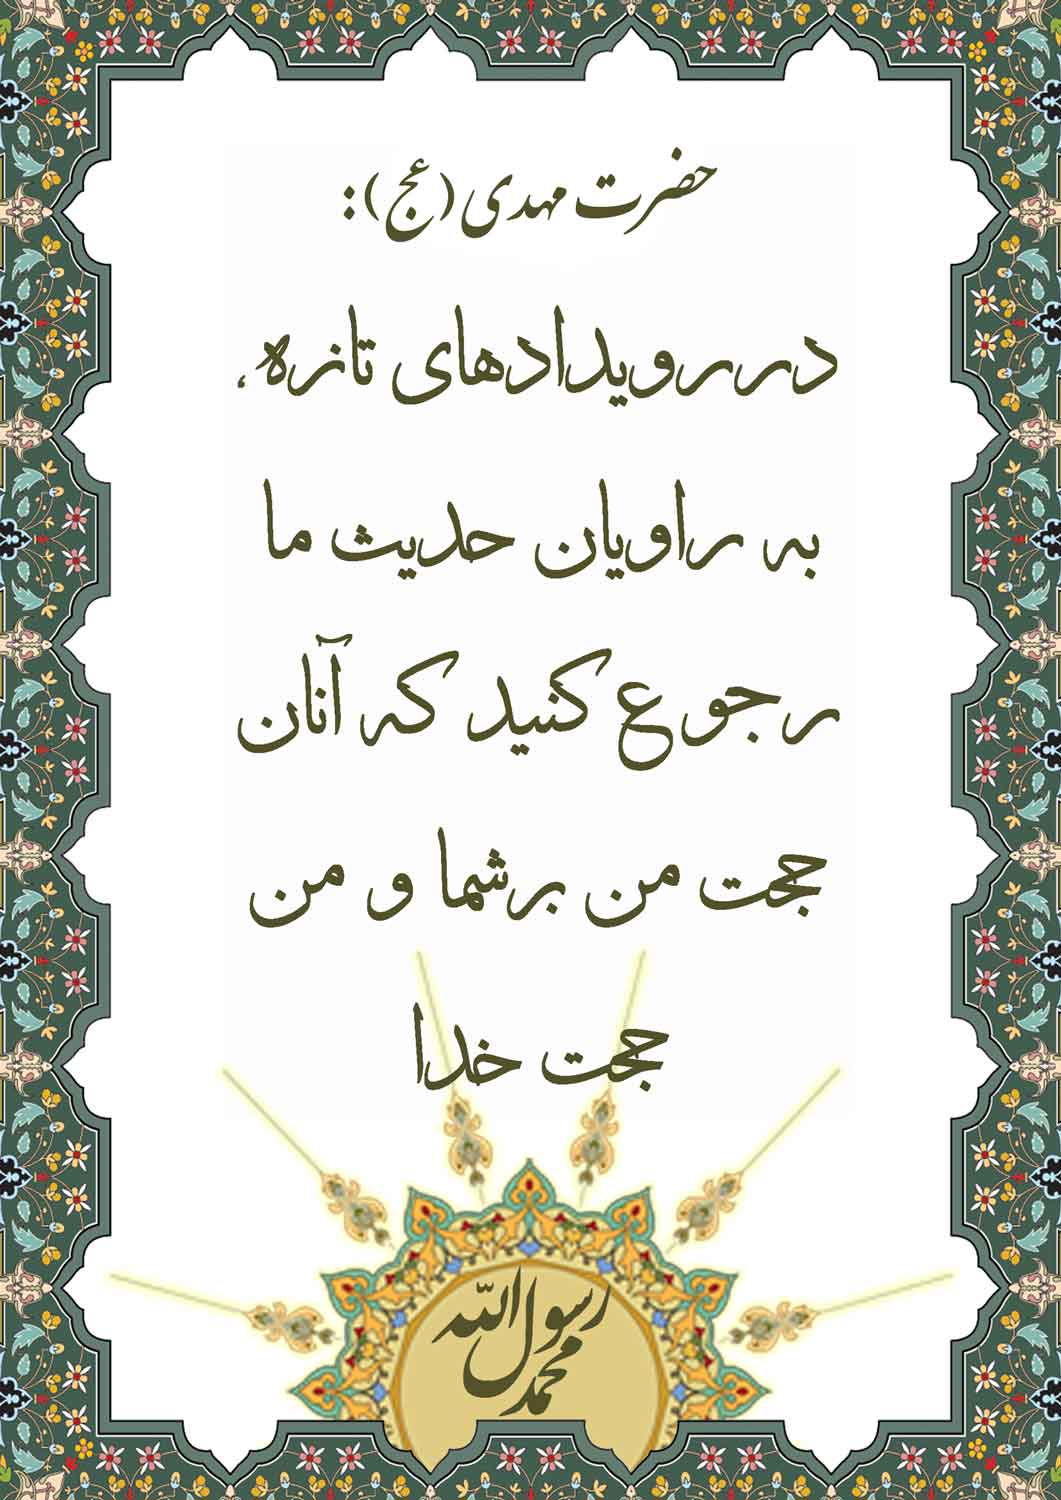 حضرت مهدی (عج):
در رویدادهای تازه،
به راویان حدیث ما
رجوع کنید که آنان
حجت من برشما و من
حجت خدا
محمد رسول الله